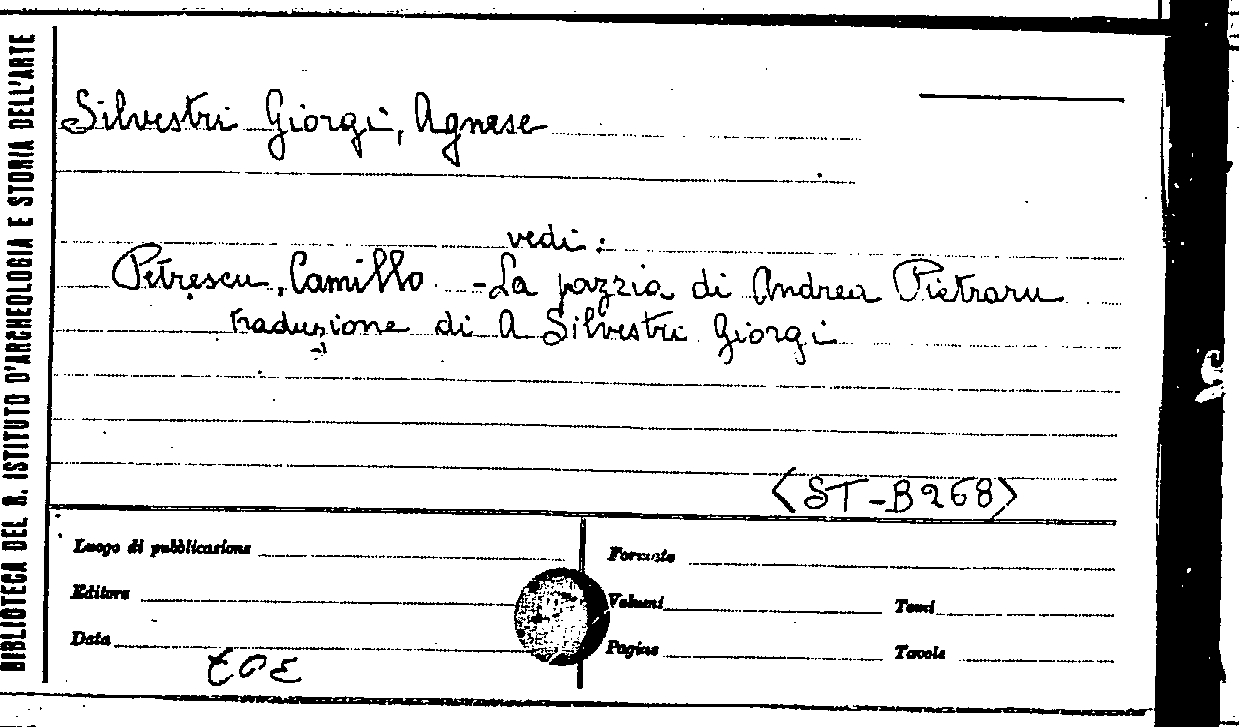 BIBLIOTECA DEL R. ISTITUTO D'ARCHEOLOGIA E STORIA DELL'ARTE
Silvestri Giorgi, Agnese
vedi:
Petrescu, Camillo - La pazzia di Andrea Pietraru
traduzione di A Silvestri Giorgi
<ST-B268>
Luogo di pubblicazione
Formato
Editore
Volumi
Tomi
Data
Pagine
Tavole